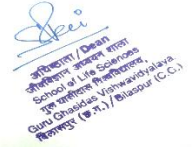 अधिष्ठाता / Dean
जीवविज्ञान अध्ययन शाला
School of Life Sciences
गुरु घासीदास विश्वविद्यालय,
Guru Ghasidas Vishwavidyalaya
बिलासपुर (छ.ग.) / Bilaspur (C.G.)